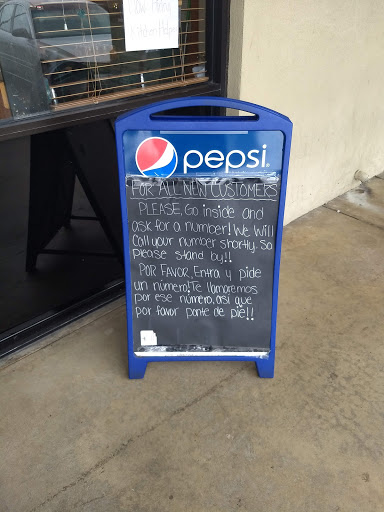 pepsi
FOR ALL NEW CUSTOMERS
PLEASE, Go inside and
ask for a number! We Will
Call your number shortly. So
please stand by!!
POR FAVOR, Entra y pide
un número! Te llamaremos
por ese número, así que
por favor ponte de pie!!